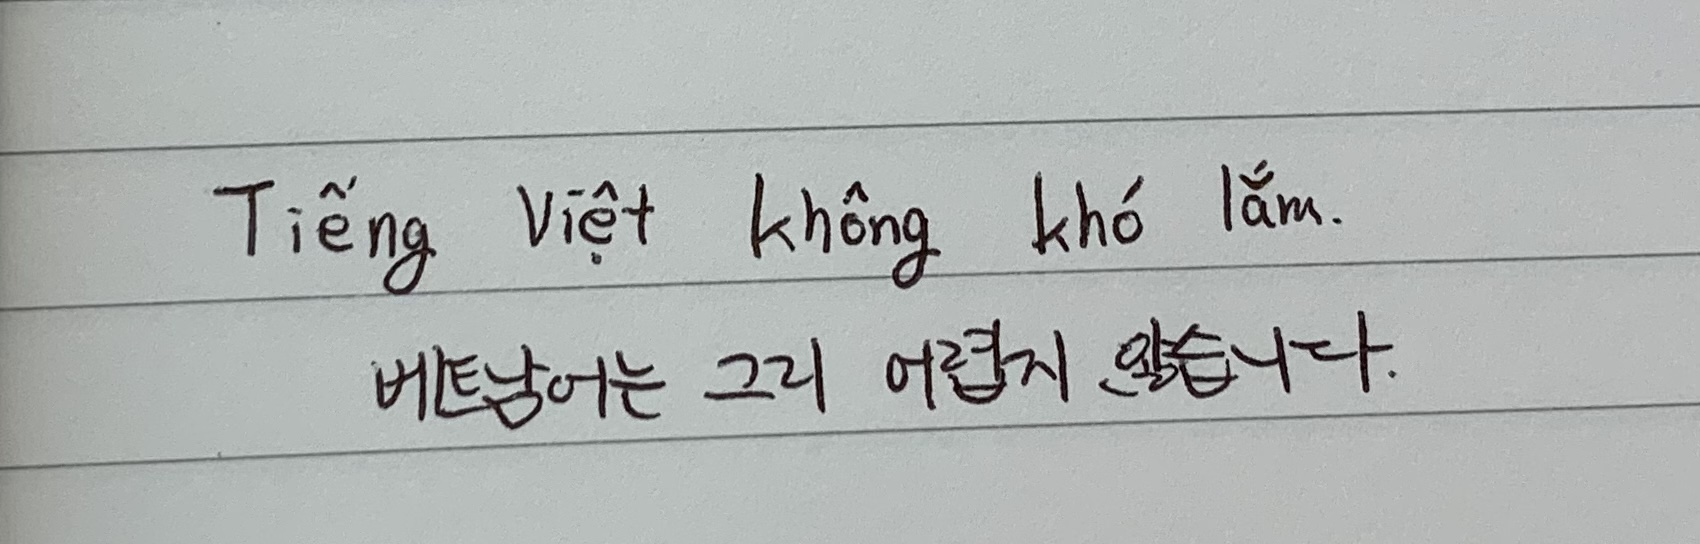 Tiếng Việt không khó lắm.
베트남어는 그리 어렵지 않습니다.